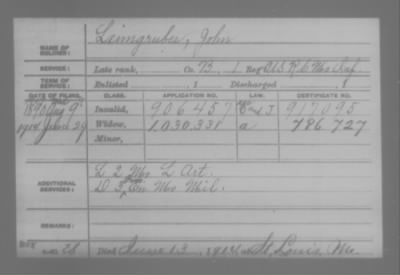 Leimgruber, John
NAME OF SOLDIER:
SERVICE: Late rank, Co. B, 1 Reg't U.S. R.C. Mo. Inf.
TERM OF SERVICE: Enlisted , 1 Discharged , 1
DATE OF FILING. CLASS. APPLICATION NO. LAW. CERTIFICATE NO.
1890 Aug 9 Invalid, 906457 J 917095
1914 June 29 Widow, 1,030,338 a 786,727
Minor,
ADDITIONAL SERVICES: L 2 Mo. L Art.
D 3 Mo Mil.
REMARKS:
Died June 13, 1914, at St. Louis, Mo.